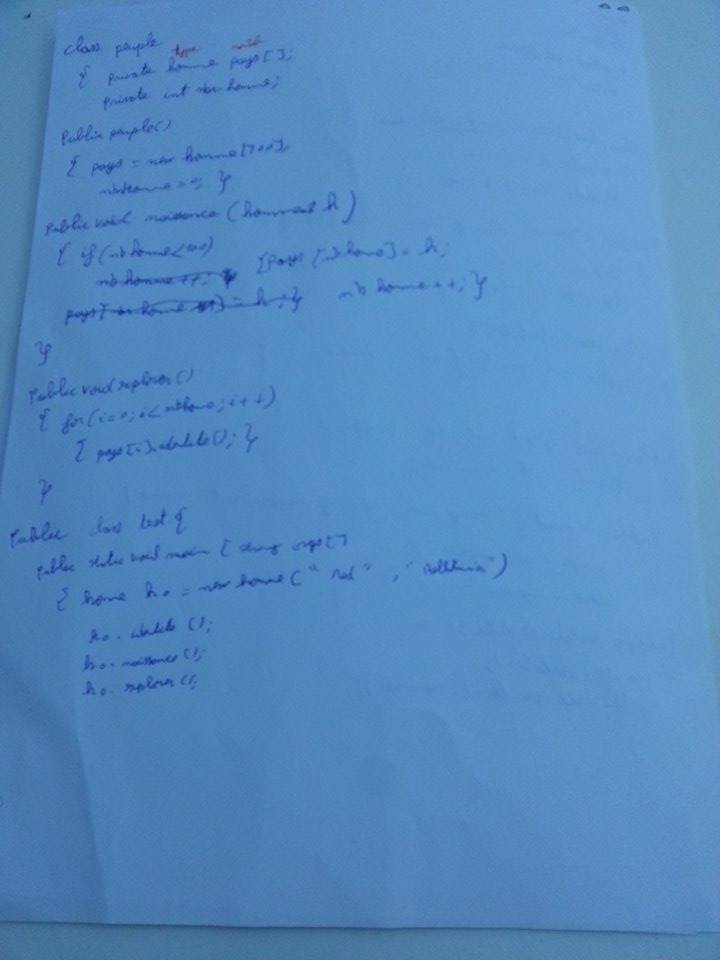 class peuple
type
{ private homme pays [];
private int nbr homme;
Public peuple()
{ pays = new homme[100];
nbhomme = 0; }
Public void naissance (homme h)
{ if (nb home < 100)
nb homme ++; } {pays [nb home] = h;
pays [nb home] = h; } nb home ++; }
}
Public void explorer ()
{ for (i=0; i< nbhome; i++)
{ pays [i]. (); }
}
Public class test {
Public static void main [ string args []
{ home h0 = new home (" " , " ")
h0. ();
h0. naissance ();
h0. explorer ();